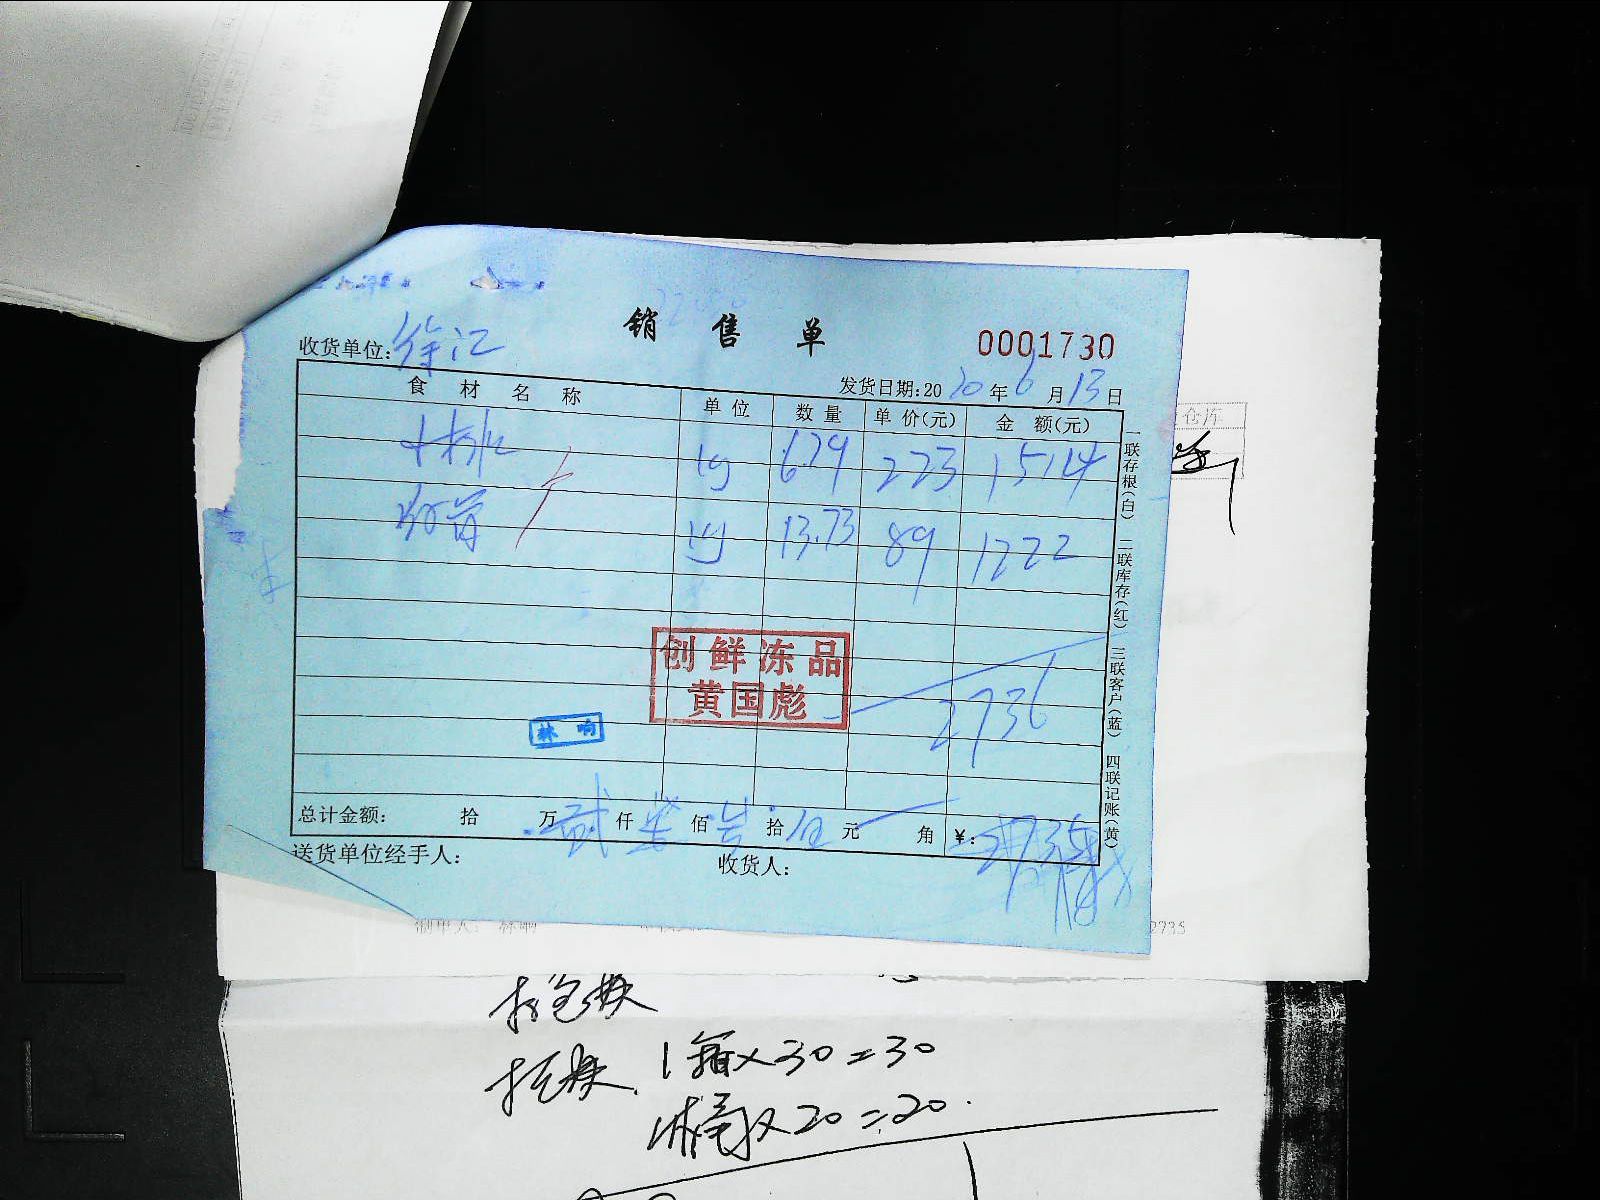 销售单
0001730
收货单位:徐汇
发货日期:2020年6月13日
食材名称 单位 数量 单价(元) 金额(元)
kg 6.79 223 1514
kg 13.73 89 1222
创鲜冻品
黄国彪
2736
林响
总计金额: 拾 万 贰仟柒佰 拾伍元 角 ¥:2735
送货单位经手人: 收货人:
一联存根(白) 二联库存(红) 三联客户(蓝) 四联记账(黄)
仓库
制单人: 林响
2735
1箱×30=30
1桶×20=20.